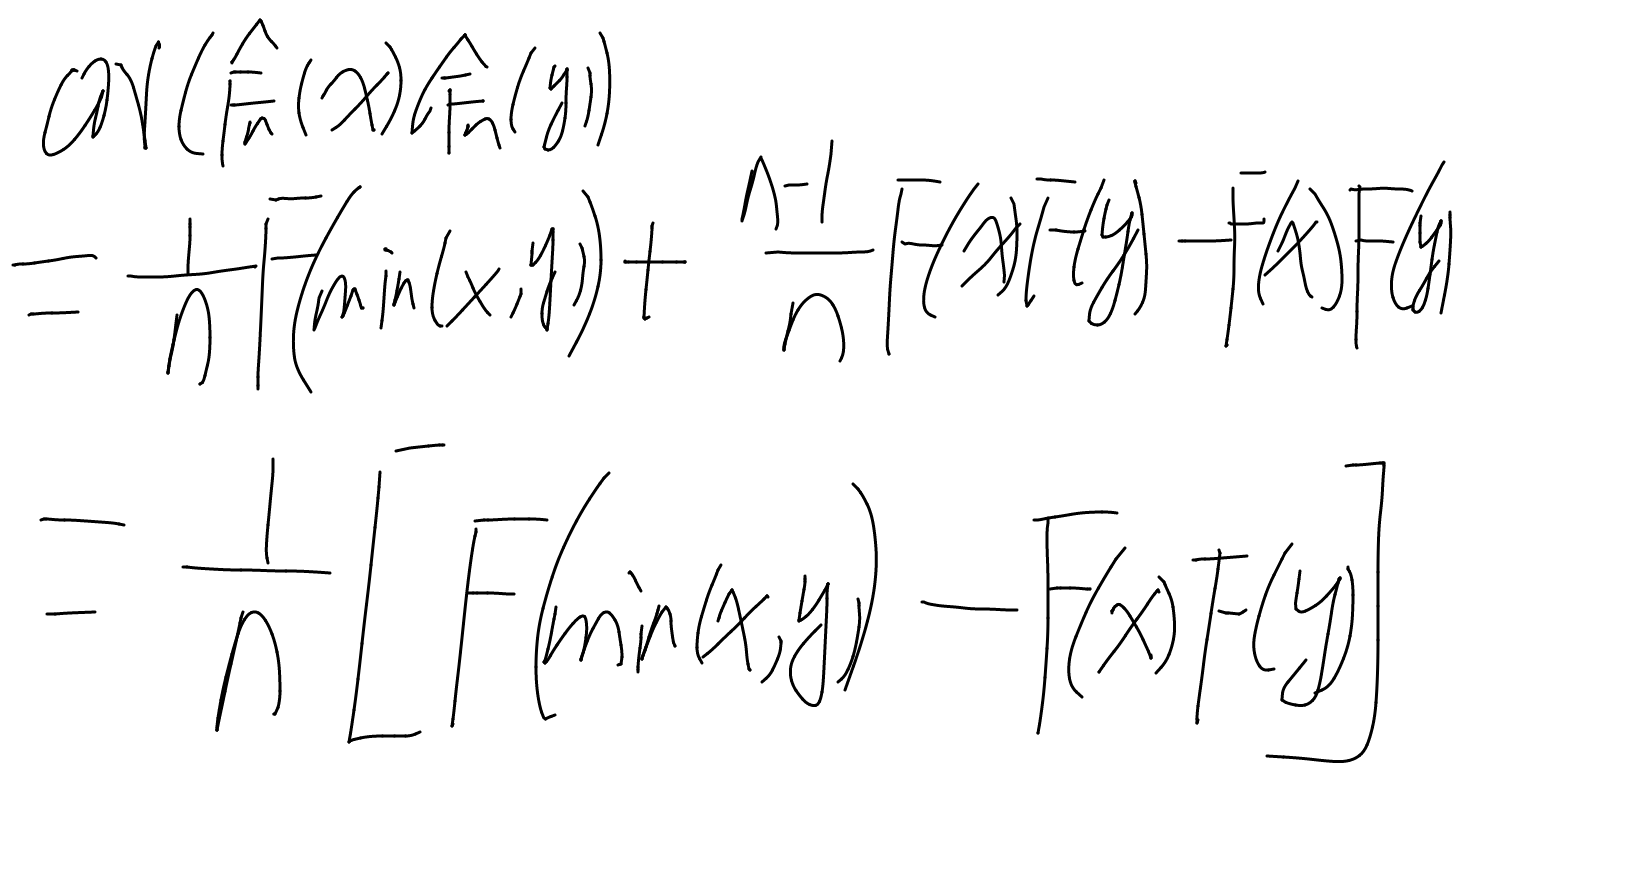 cov(F̂n(x), F̂n(y))
= 1/n F(min(x,y)) + n-1/n F(x)F(y) - F(x)F(y)
= 1/n [F(min(x,y)) - F(x)F(y)]